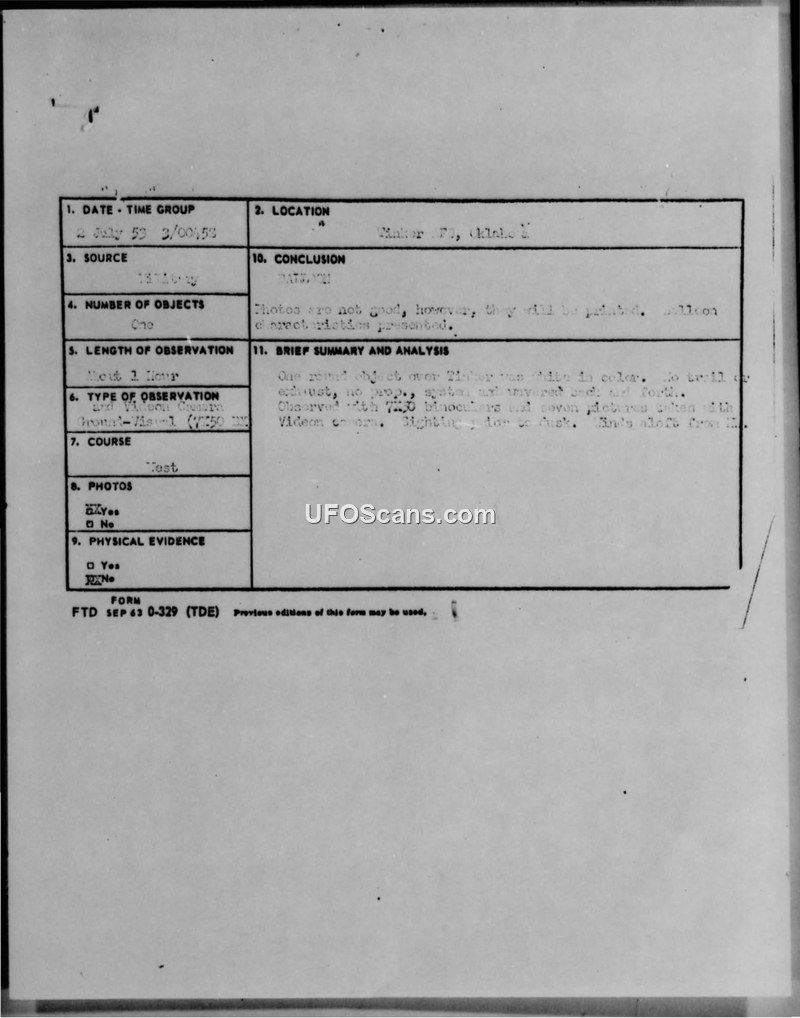 1. DATE - TIME GROUP
2 July 53 3/0045Z
2. LOCATION
Tinker AFB, Oklahoma
3. SOURCE
Military
10. CONCLUSION
BALLOON
Photos are not good, however, they will be printed. Balloon
characteristics presented.
4. NUMBER OF OBJECTS
One
5. LENGTH OF OBSERVATION
About 1 Hour
11. BRIEF SUMMARY AND ANALYSIS
One round object over Tinker was white in color. No trail or
exhaust, no prop., system and wavered back and forth.
Observed with 7X50 binoculars and seven pictures taken with
Videon camera. Sighting prior to dusk. Winds aloft from
6. TYPE OF OBSERVATION
and Videon Camera
Ground-Visual (7X50
7. COURSE
West
8. PHOTOS
Yes
No
9. PHYSICAL EVIDENCE
Yes
No
UFOScans.com
FORM
FTD SEP 63 0-329 (TDE) Previous editions of this form may be used.